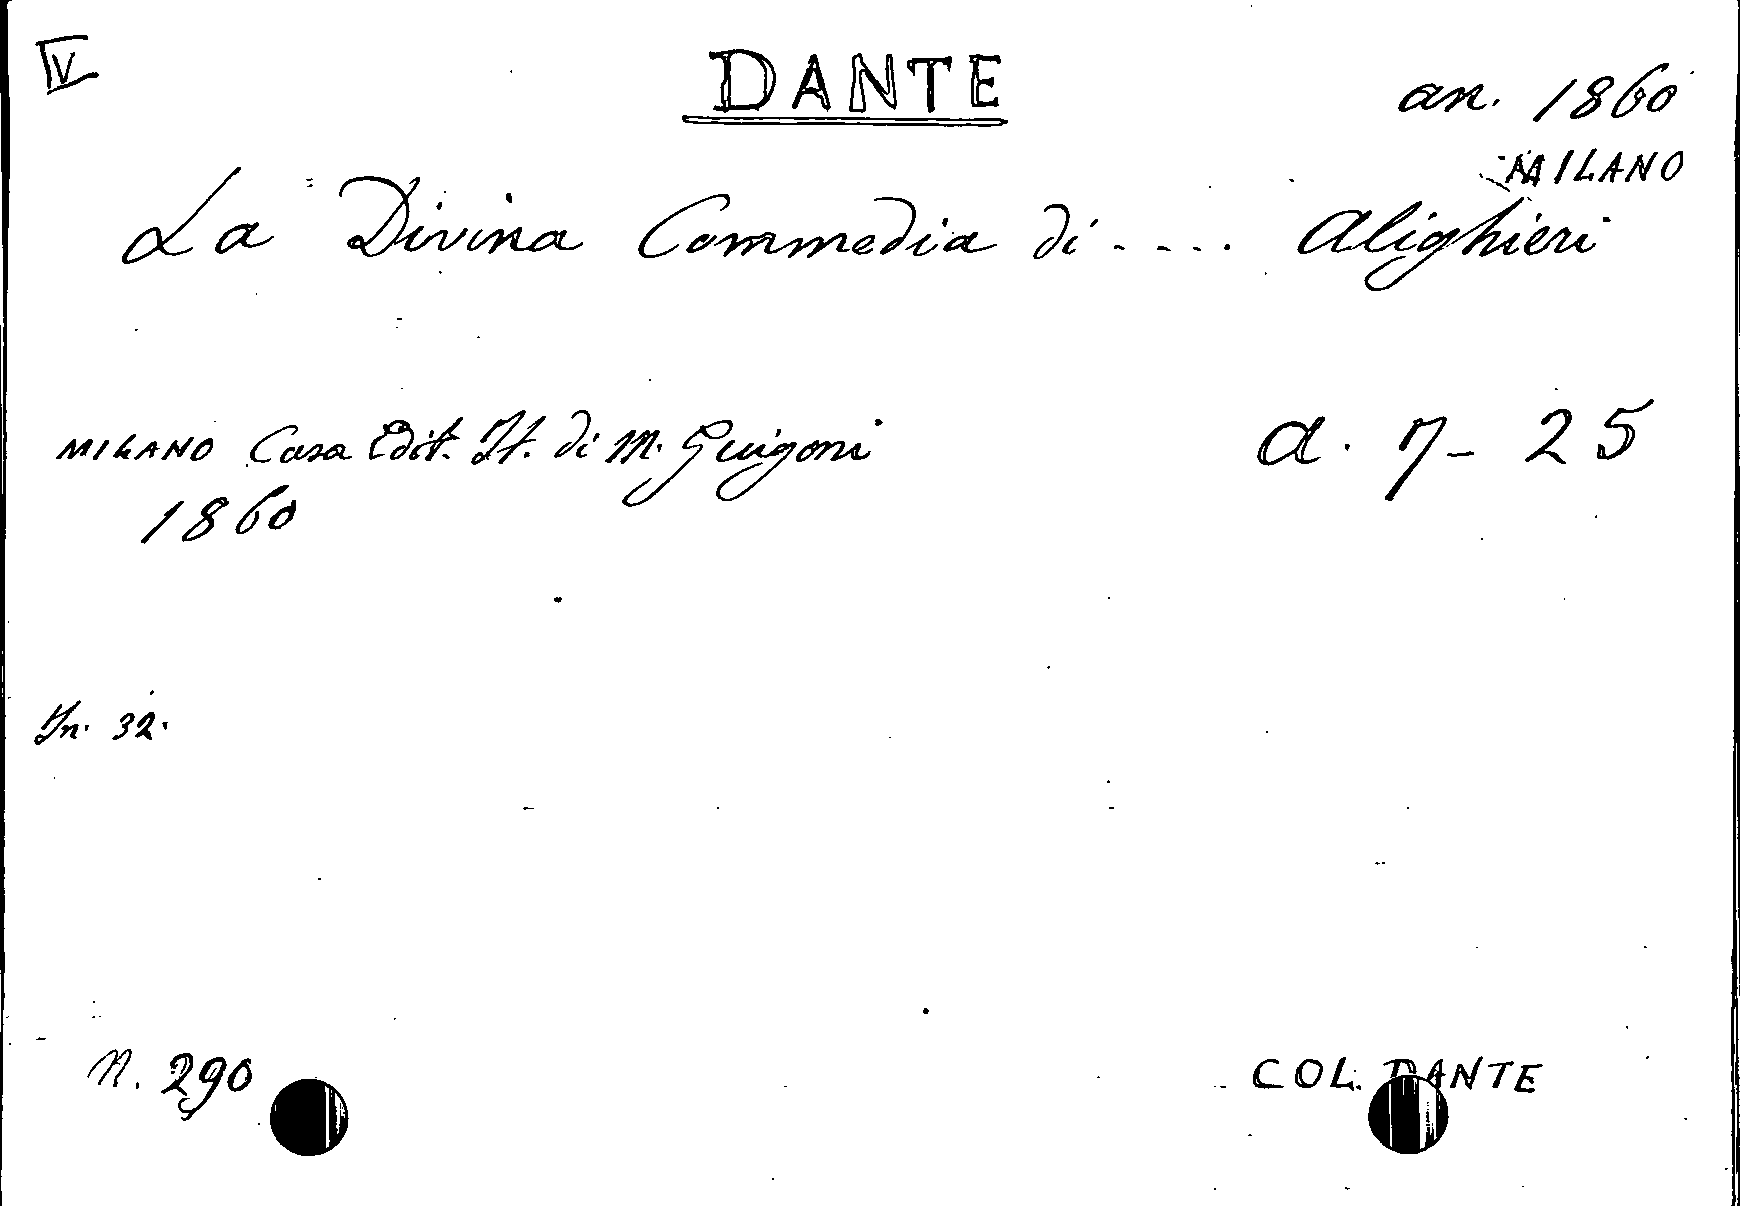 IV
DANTE
an. 1860
MILANO
La Divina Commedia di .... Alighieri
MILANO Casa Edit. It. di M. Guigoni
a. 7 - 25
1860
In. 32.
N. 290
COL. DANTE